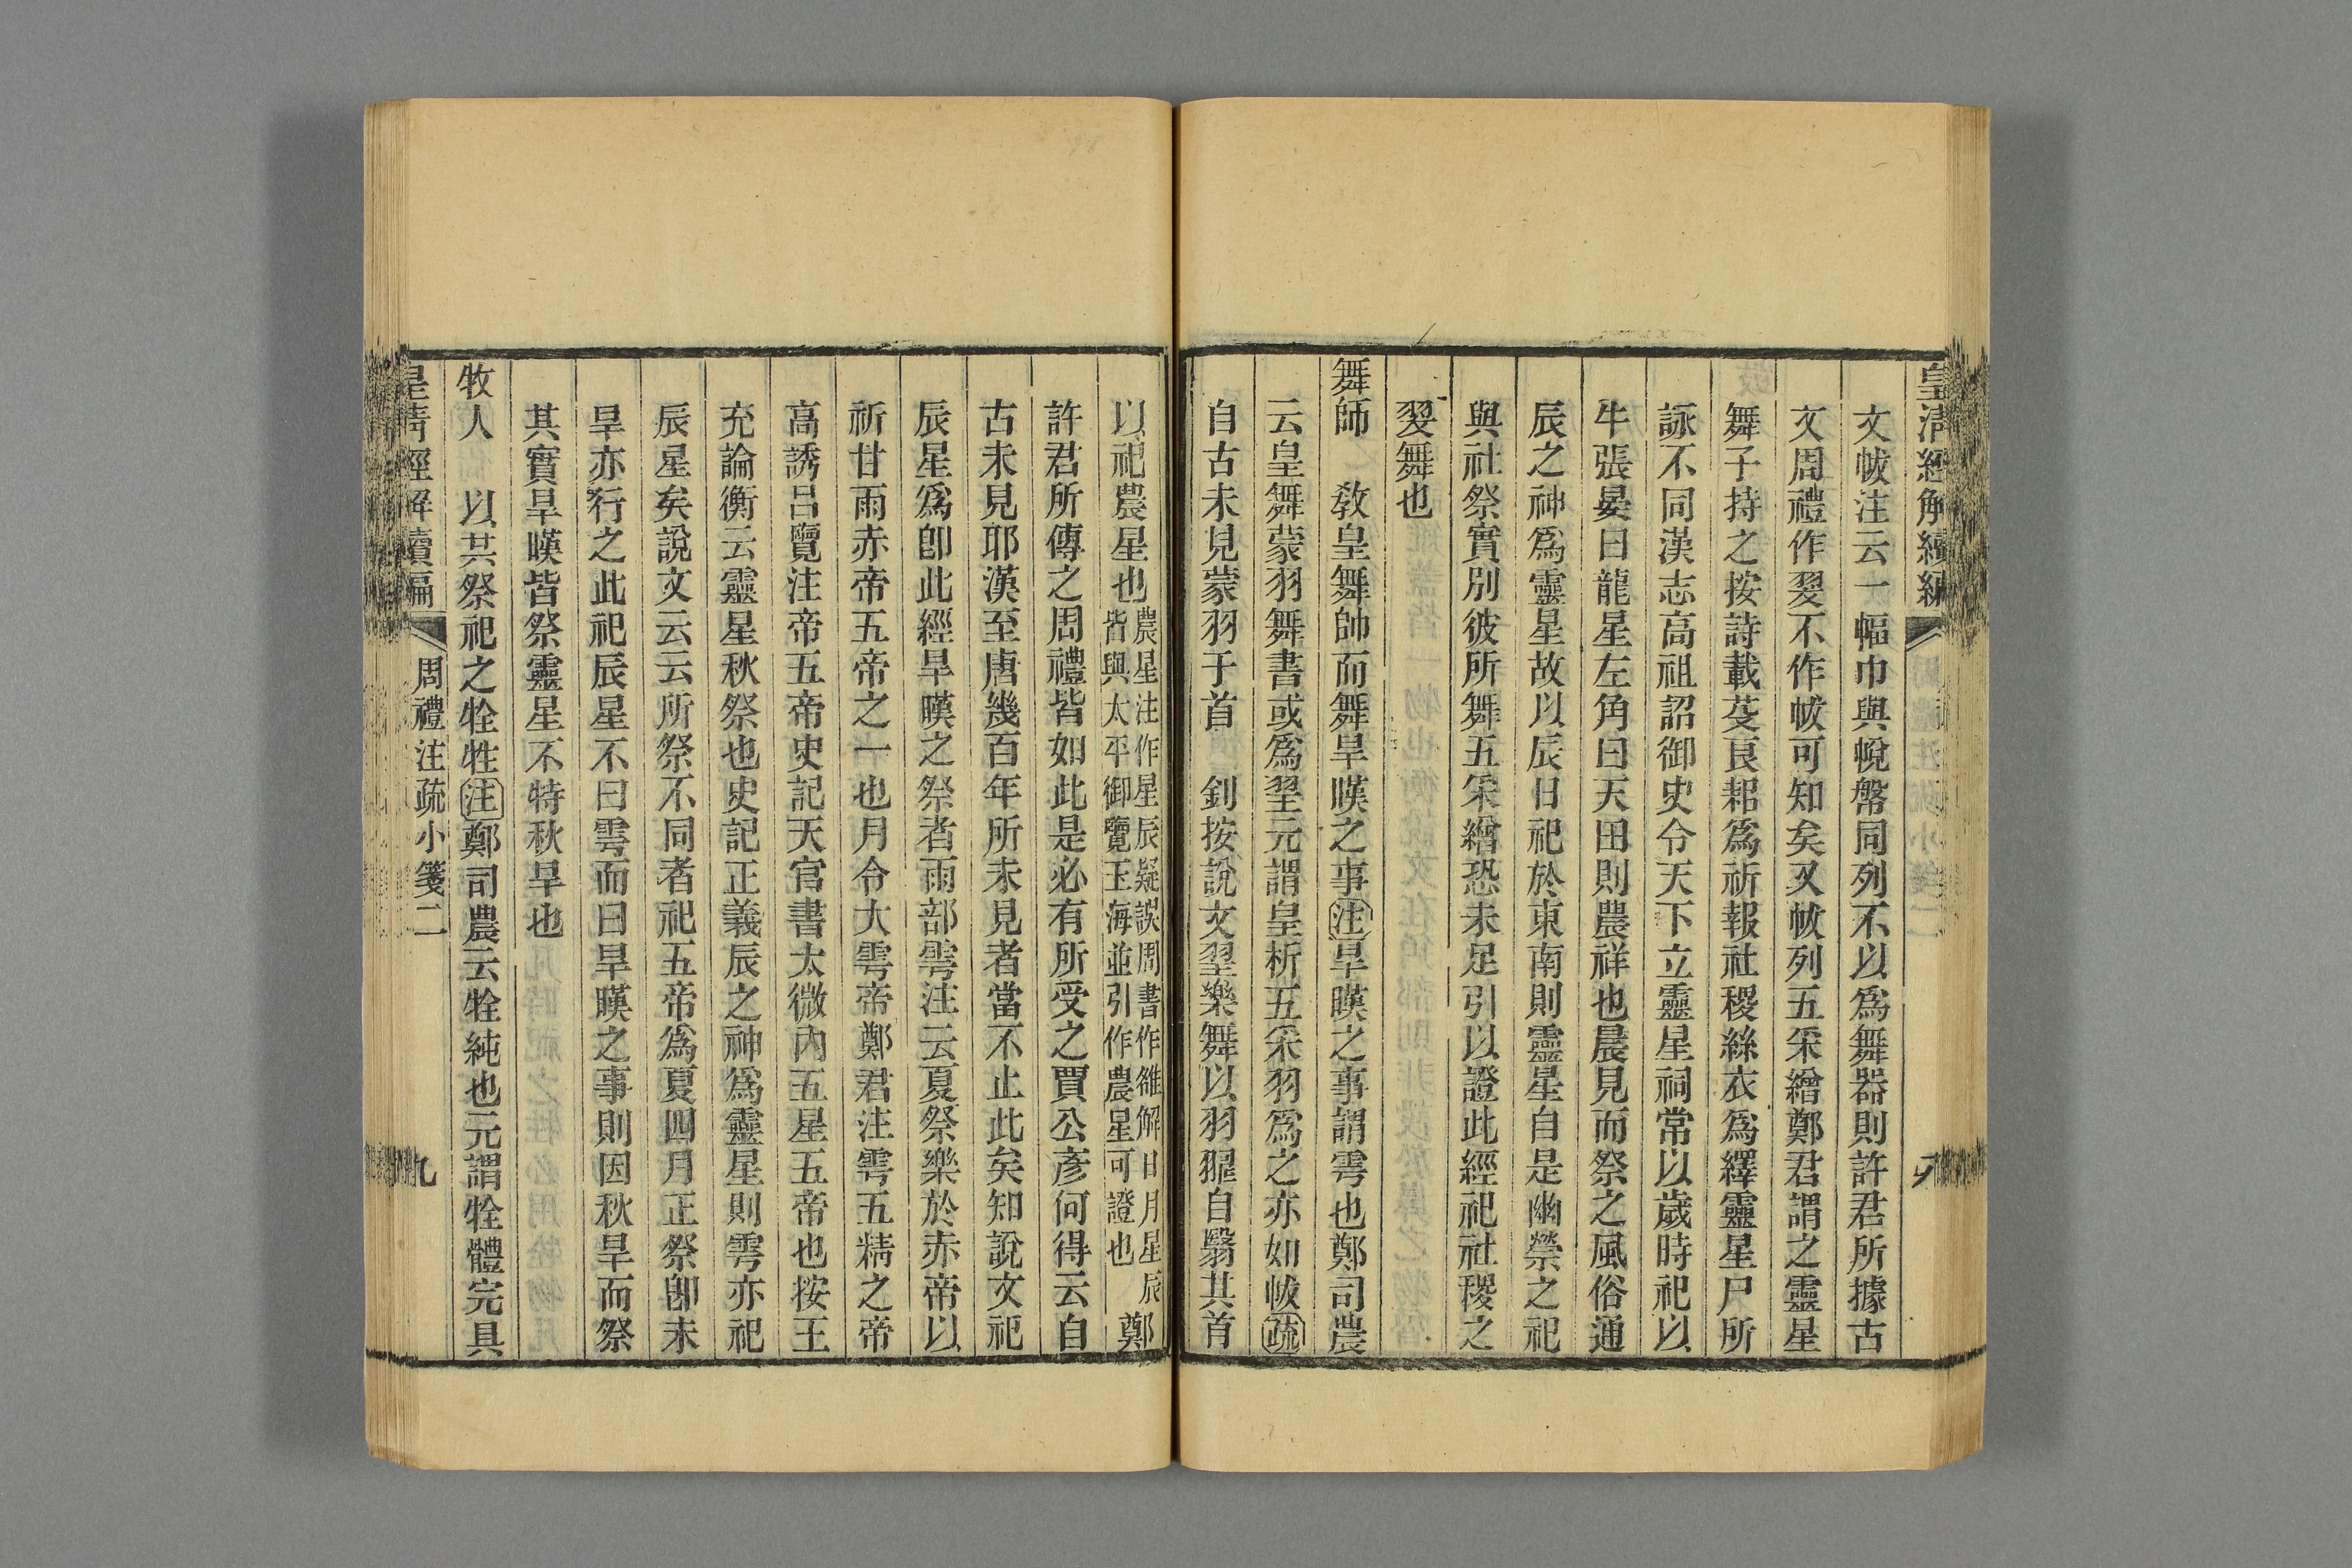 皇清經解續編
文帗注云一幅巾與帨幋同列不以為舞器則許君所據古
文周禮作翇不作帗可知矣又帗列五采繒鄭君謂之靈星
舞子持之按詩載芟良耜為祈報社稷絲衣為繹靈星尸所
詠不同漢志高祖詔御史令天下立靈星祠常以歲時祀以
牛張晏曰龍星左角曰天田則農祥也晨見而祭之風俗通
辰之神為靈星故以辰日祀於東南則靈星自是幽禜之祀
與社祭實別彼所舞五采繒恐未足引以證此經祀社稷之
翇舞也
舞師 敎皇舞帥而舞旱暵之事注旱暵之事謂雩也鄭司農
云皇舞蒙羽舞書或為䍿元謂皇析五采羽為之亦如帗疏
自古未見蒙羽于首 釗按說文䍿樂舞以羽𦒉自翳其首
以祀農星也農星注作星辰疑誤周書作雒解日月星辰
皆與太平御覽玉海並引作農星可證也鄭
許君所傳之周禮皆如此是必有所受之賈公彥何得云自
古未見耶漢至唐幾百年所未見者當不止此矣知說文祀
辰星為卽此經旱暵之祭者雨部雩注云夏祭樂於赤帝以
祈甘雨赤帝五帝之一也月令大雩帝鄭君注雩五精之帝
高誘呂覽注帝五帝史記天官書太微內五星五帝也按王
充論衡云靈星秋祭也史記正義辰之神為靈星則雩亦祀
辰星矣說文云云所祭不同者祀五帝為夏四月正祭卽未
旱亦行之此祀辰星不曰雩而曰旱暵之事則因秋旱而祭
其實旱暵皆祭靈星不特秋旱也
牧人 以共祭祀之牷牲注鄭司農云牷純也元謂牷體完具
皇淸經解續編 周禮注疏小箋二 九